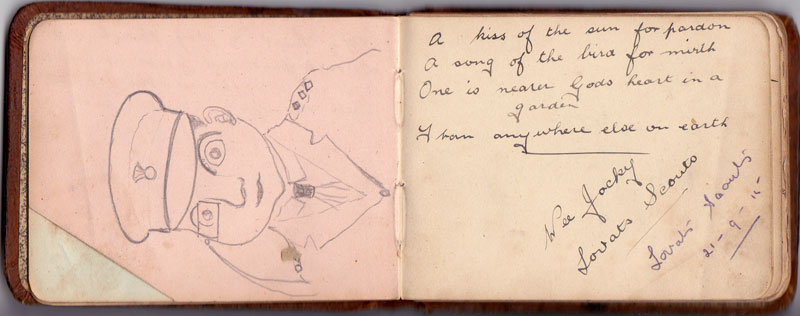 A kiss of the sun for pardon
A song of the bird for mirth
One is nearer Gods heart in a
garden
Than anywhere else on earth
Wee Jocky
Lovats Scouts
Lovats Scouts
21-9-15-